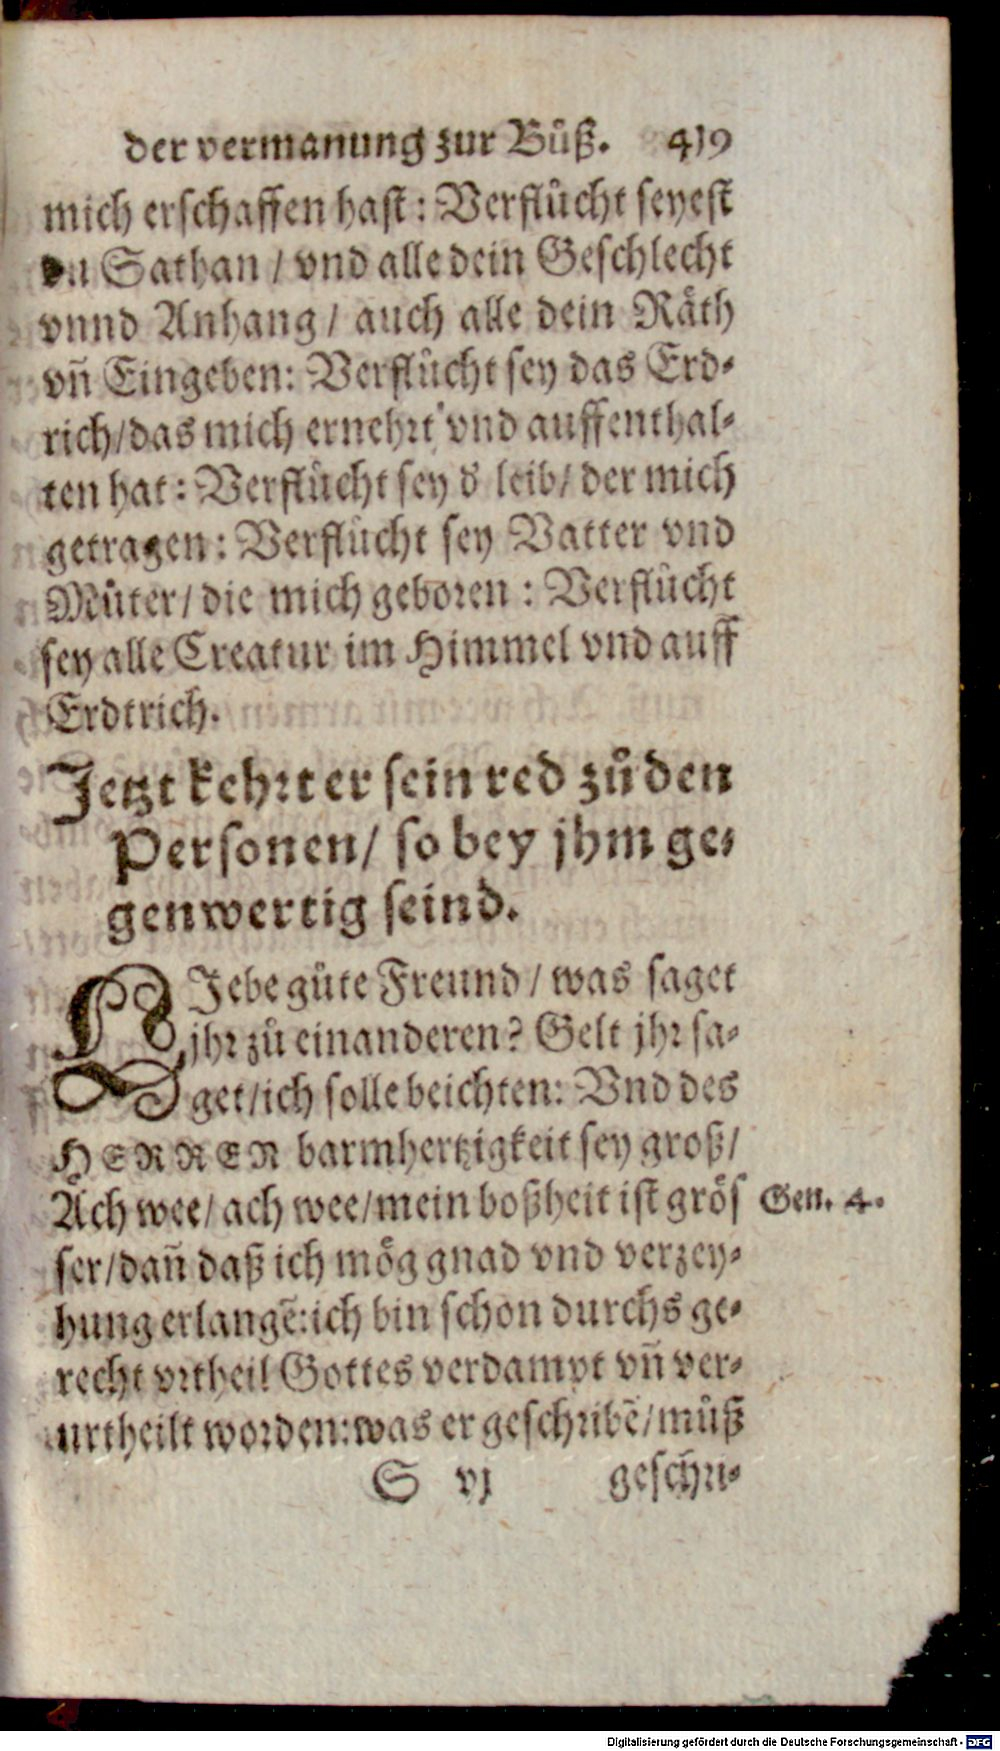 der vermanung zur Bůß. 419
mich erschaffen hast: Verflůcht seyest
du Sathan / vnd alle dein Geschlecht
vnnd Anhang / auch alle dein Räth
vñ Eingeben: Verflůcht sey das Erd-
rich/das mich ernehrt vnd auffenthal-
ten hat: Verflůcht sey d' leib/ der mich
getragen: Verflůcht sey Vatter vnd
Můter/ die mich geboren: Verflůcht
sey alle Creatur im Himmel vnd auff
Erdtrich.
Jetzt kehrt er sein red zů den
Personen/ so bey jhm ge-
genwertig seind.
LJebe gůte Freund / was saget
jhr zů einanderen? Gelt jhr sa-
get/ich solle beichten: Vnd des
HERREN barmhertzigkeit sey groß/
Ach wee/ ach wee/mein boßheit ist grös Gen. 4.
ser/dañ daß ich mög gnad vnd verzey-
hung erlangẽ:ich bin schon durchs ge-
recht vrtheil Gottes verdampt vñ ver-
urtheilt worden:was er geschribẽ/můß
S vj geschri-
Digitalisierung gefördert durch die Deutsche Forschungsgemeinschaft - DFG